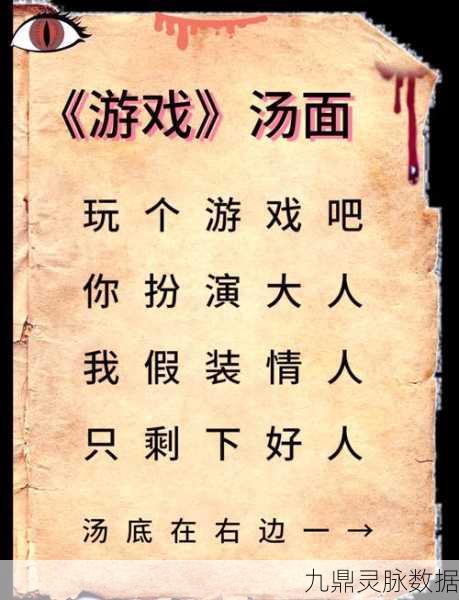 《游戏》汤面
玩个游戏吧
你扮演大人
我假装情人
只剩下好人
汤底在右边一→
九鼎灵脉数据